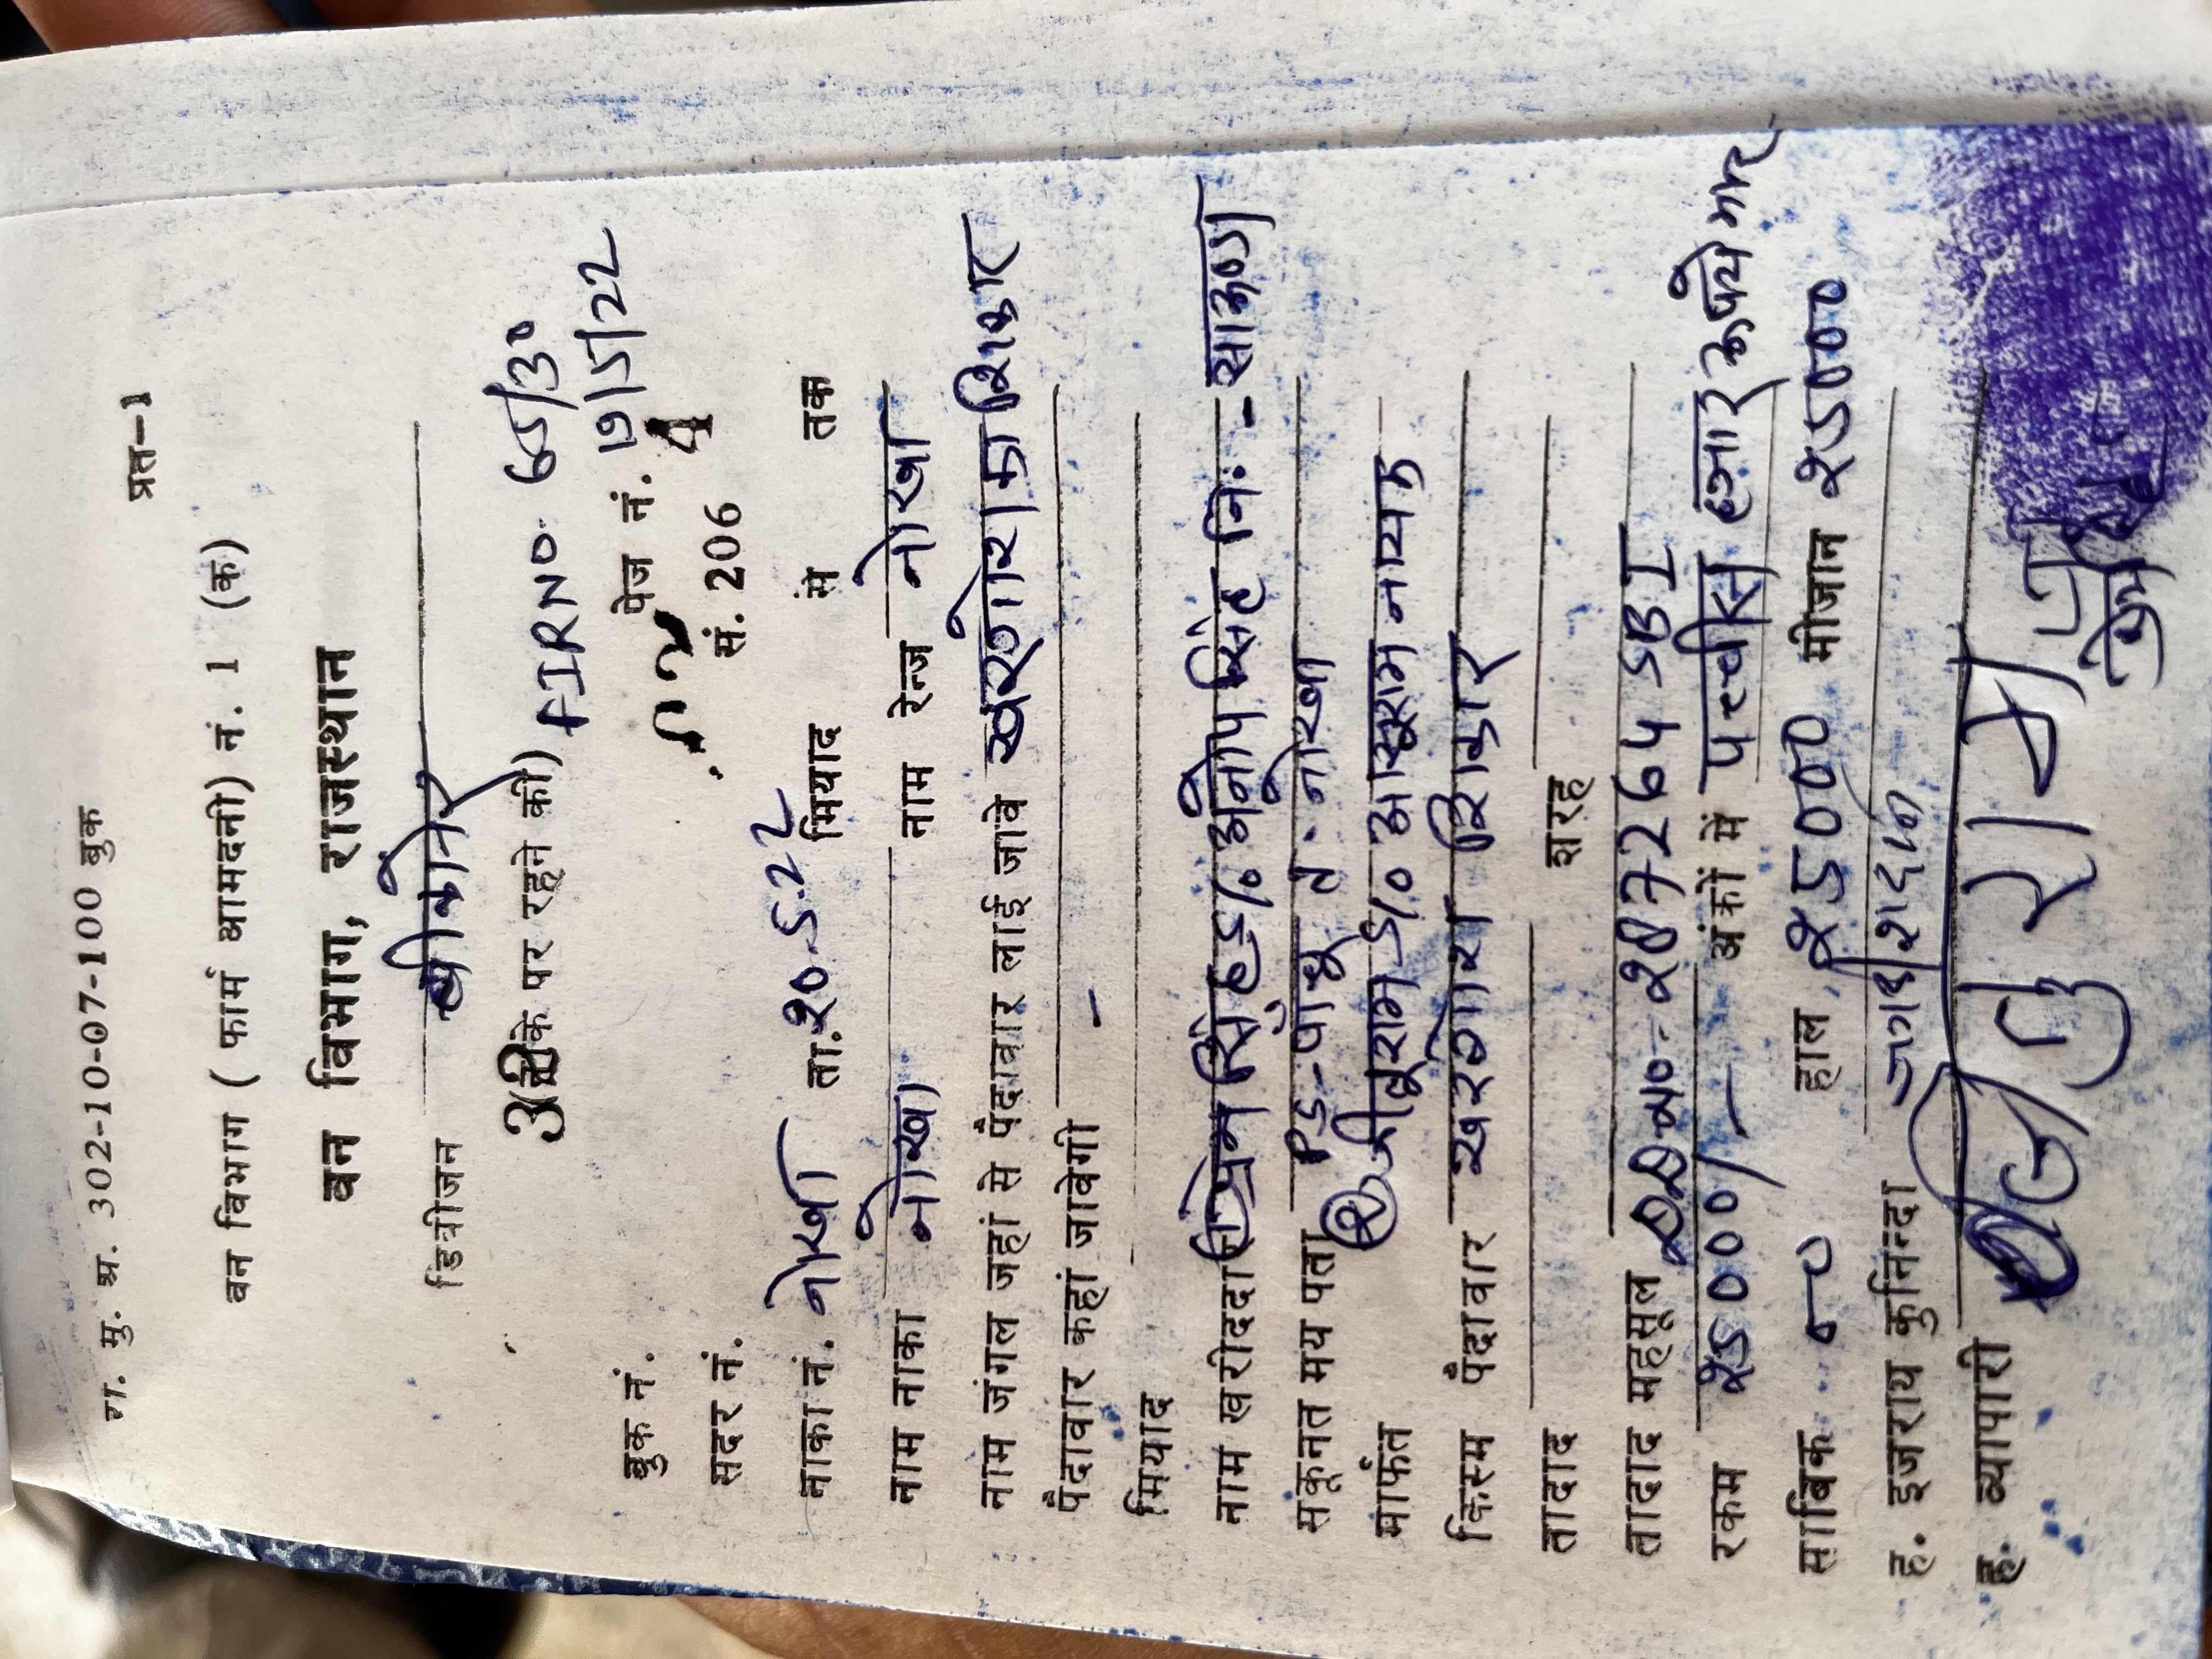 रा. मु. अ. 302-10-07-100 बुक
प्रत-1
वन विभाग ( फार्म आमदनी) नं. 1 (क)
वन विभाग, राजस्थान
डिवीजन बीकानेर
(नाके पर रहने की) FIR NO. 65/30
बुक नं. पेज नं. 19/5/22
सदर नं. सं. 206
नाका नं. नोखा ता. 20.5.22 मियाद से तक
नाम नाका नोखा नाम रेन्ज नोखा
नाम जंगल जहां से पैदावार लाई जावे खरगोश का शिकार
पैदावार कहां जावेगी -
मियाद
नाम खरीददार ① प्रेम सिंह S/o अनोप सिंह नि: - सारूण्डा
सकूनत मय पता PS-पाँचू त. नोखा
मार्फत ② जीतूराम S/o आसूराम नायक
किस्म पैदावार खरगोश शिकार
तादाद शरह
तादाद महसूल DD no - 287264 SBI
रकम 25000/- अंकों में पच्चीस हजार रूपये मात्र
साबिक हाल 25000 मीजान 25000
ह. इजराय कुनिन्दा जगदीशदान
ह. व्यापारी जितुराम